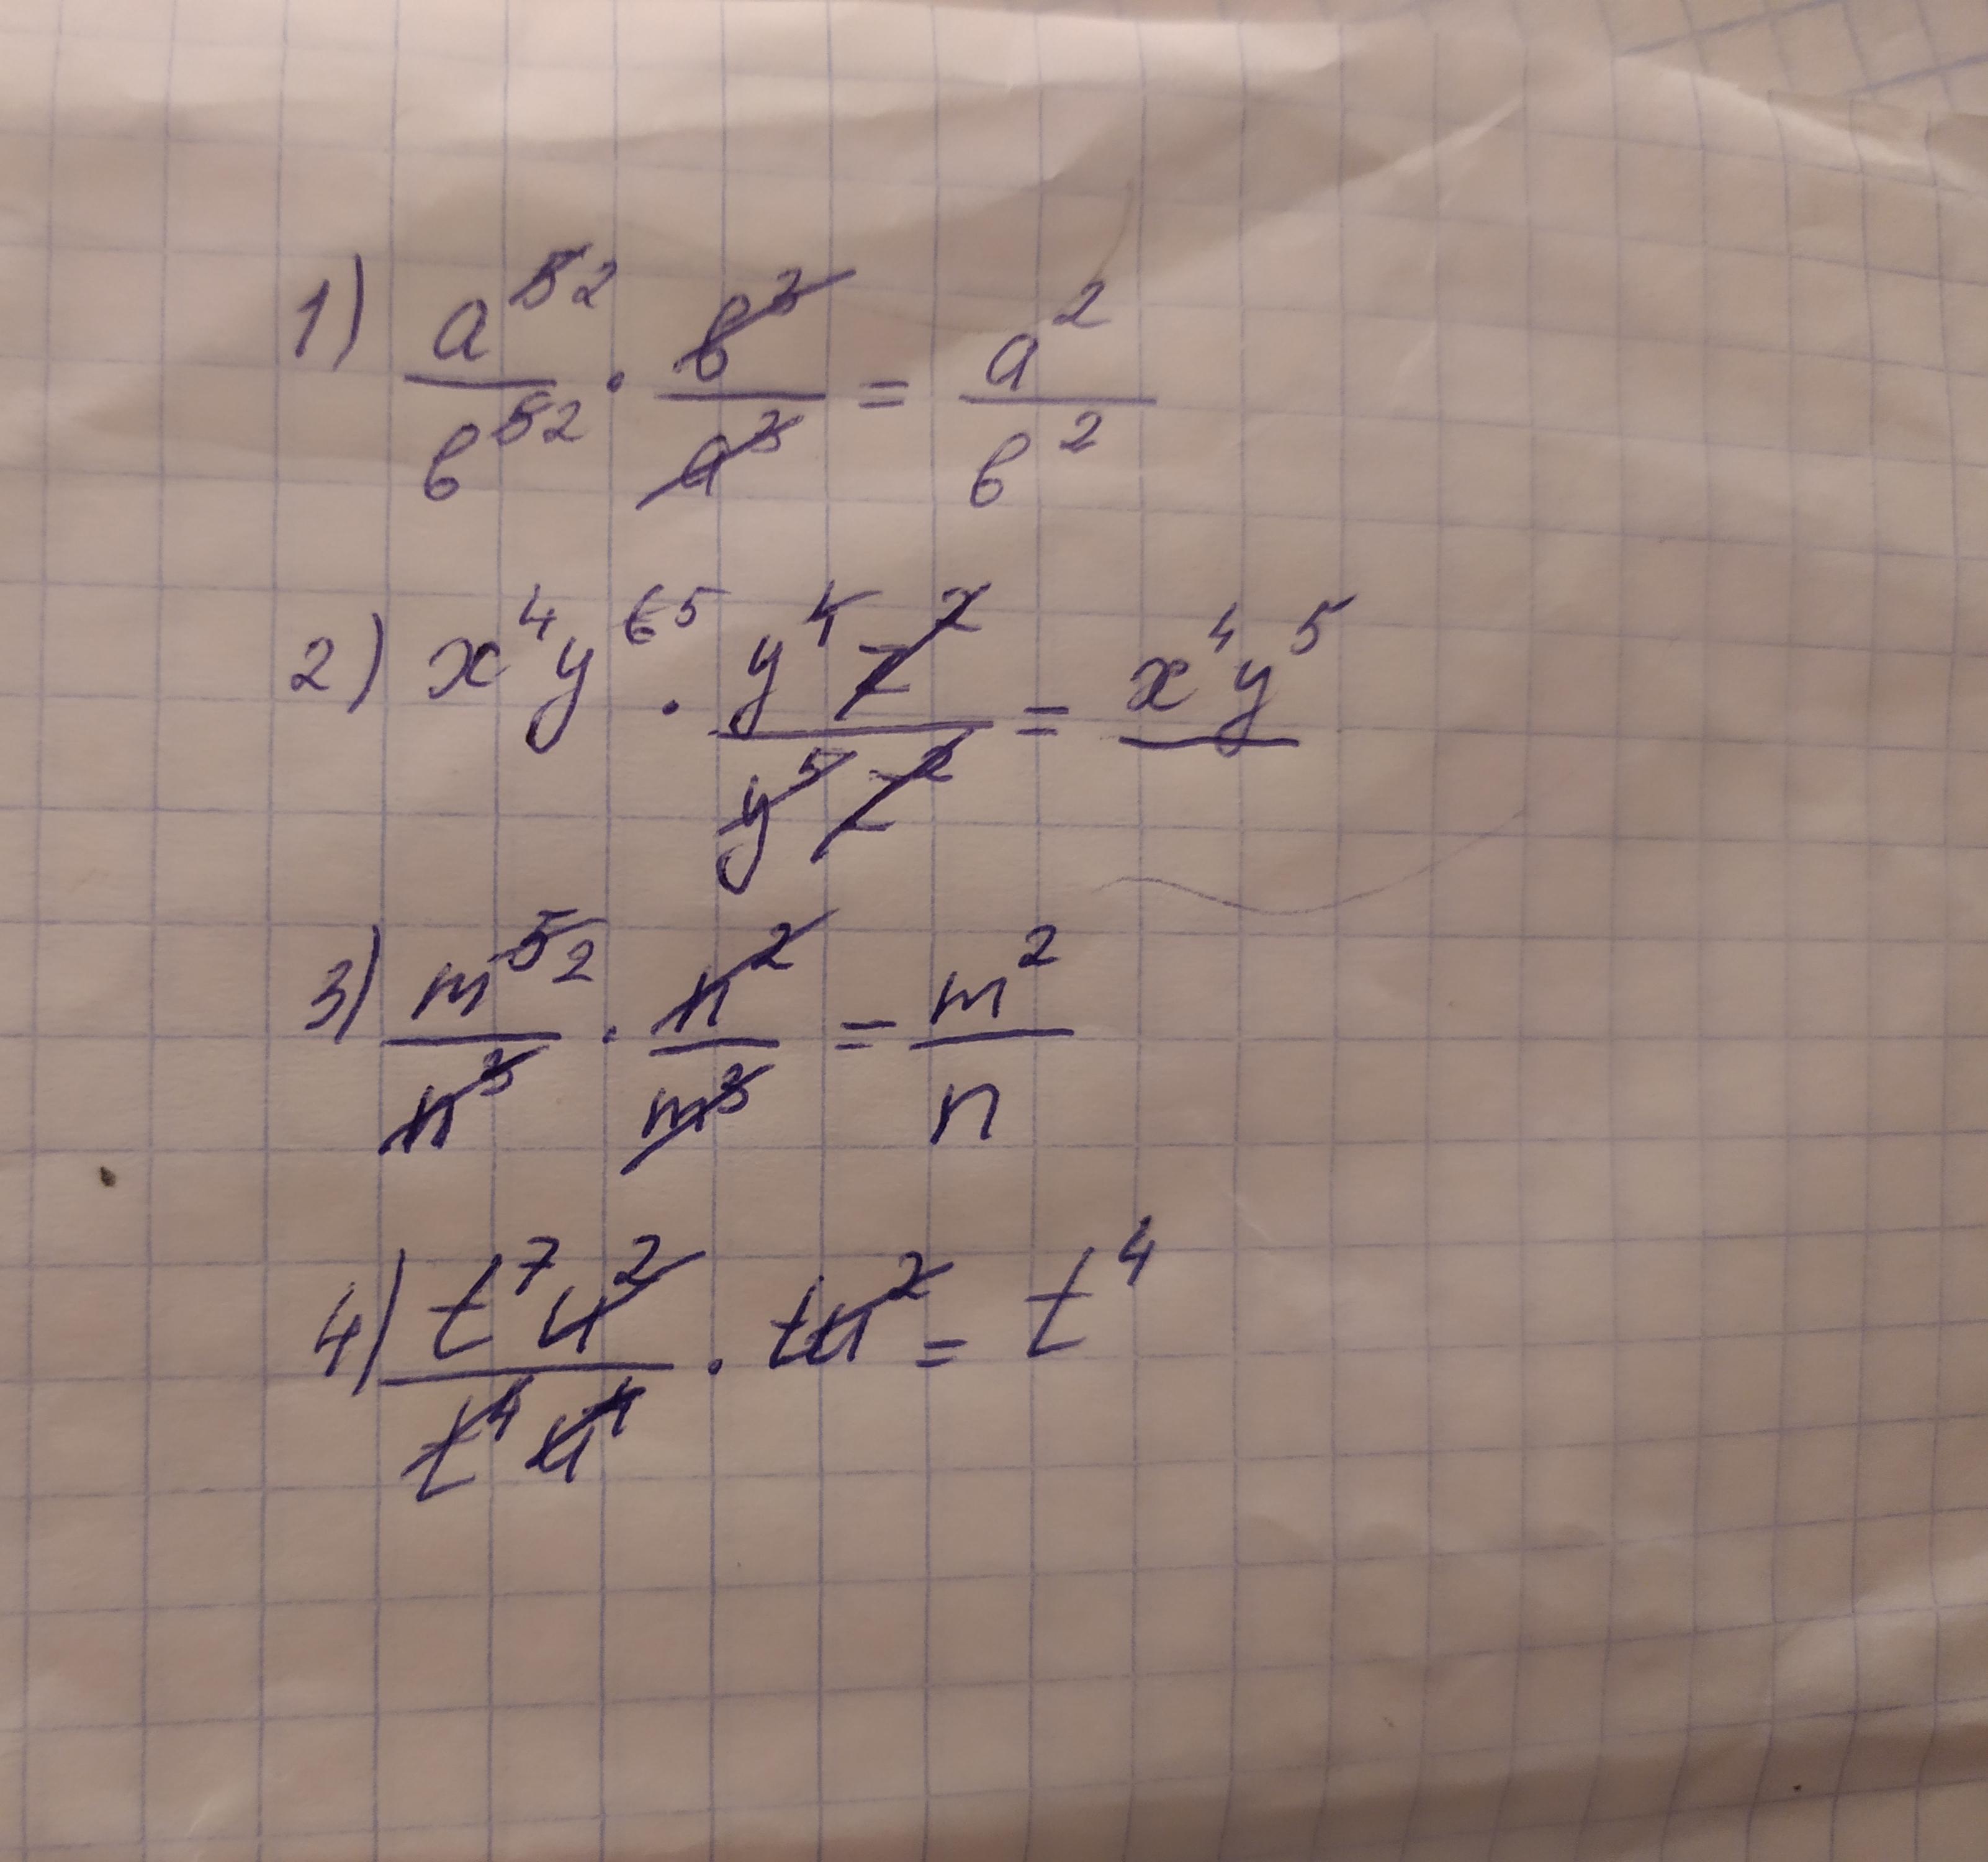 1) a⁵² / в⁵² · в³ / a³ = a² / в²
2) x⁴y⁶⁵ · y⁴z² / y⁵z² = x⁴y⁵
3) m⁵² / n³ · n² / m³ = m² / n
4) t⁷u² / t⁴u⁴ · tu² = t⁴